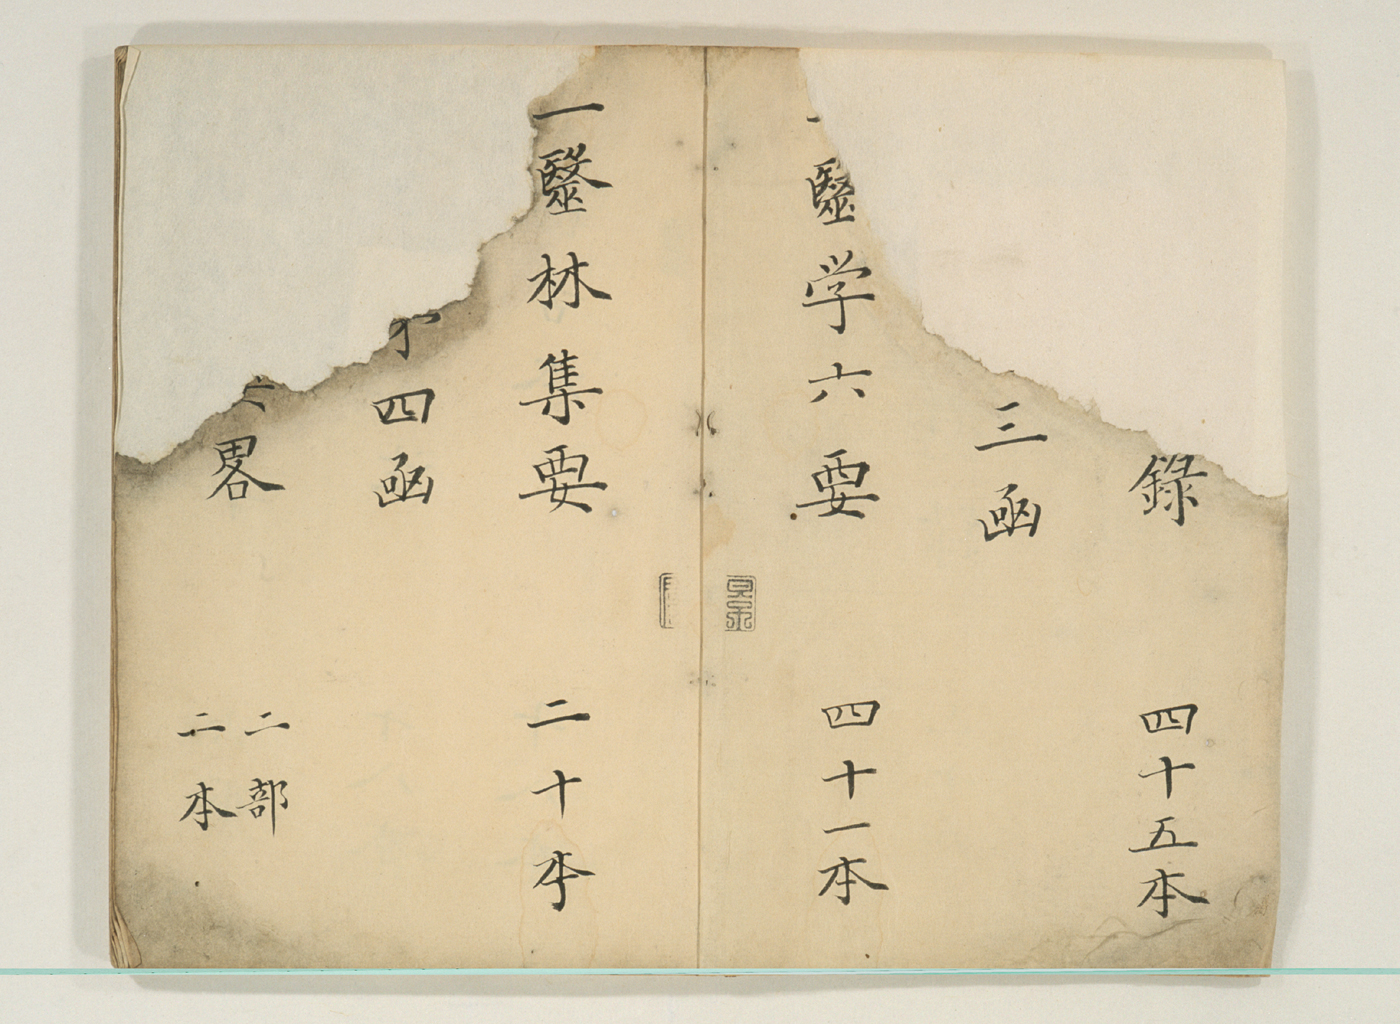 錄 四十五本
三凾
一毉学六要 四十一本
一毉林集要 二十本
四凾
畧 二部
二本